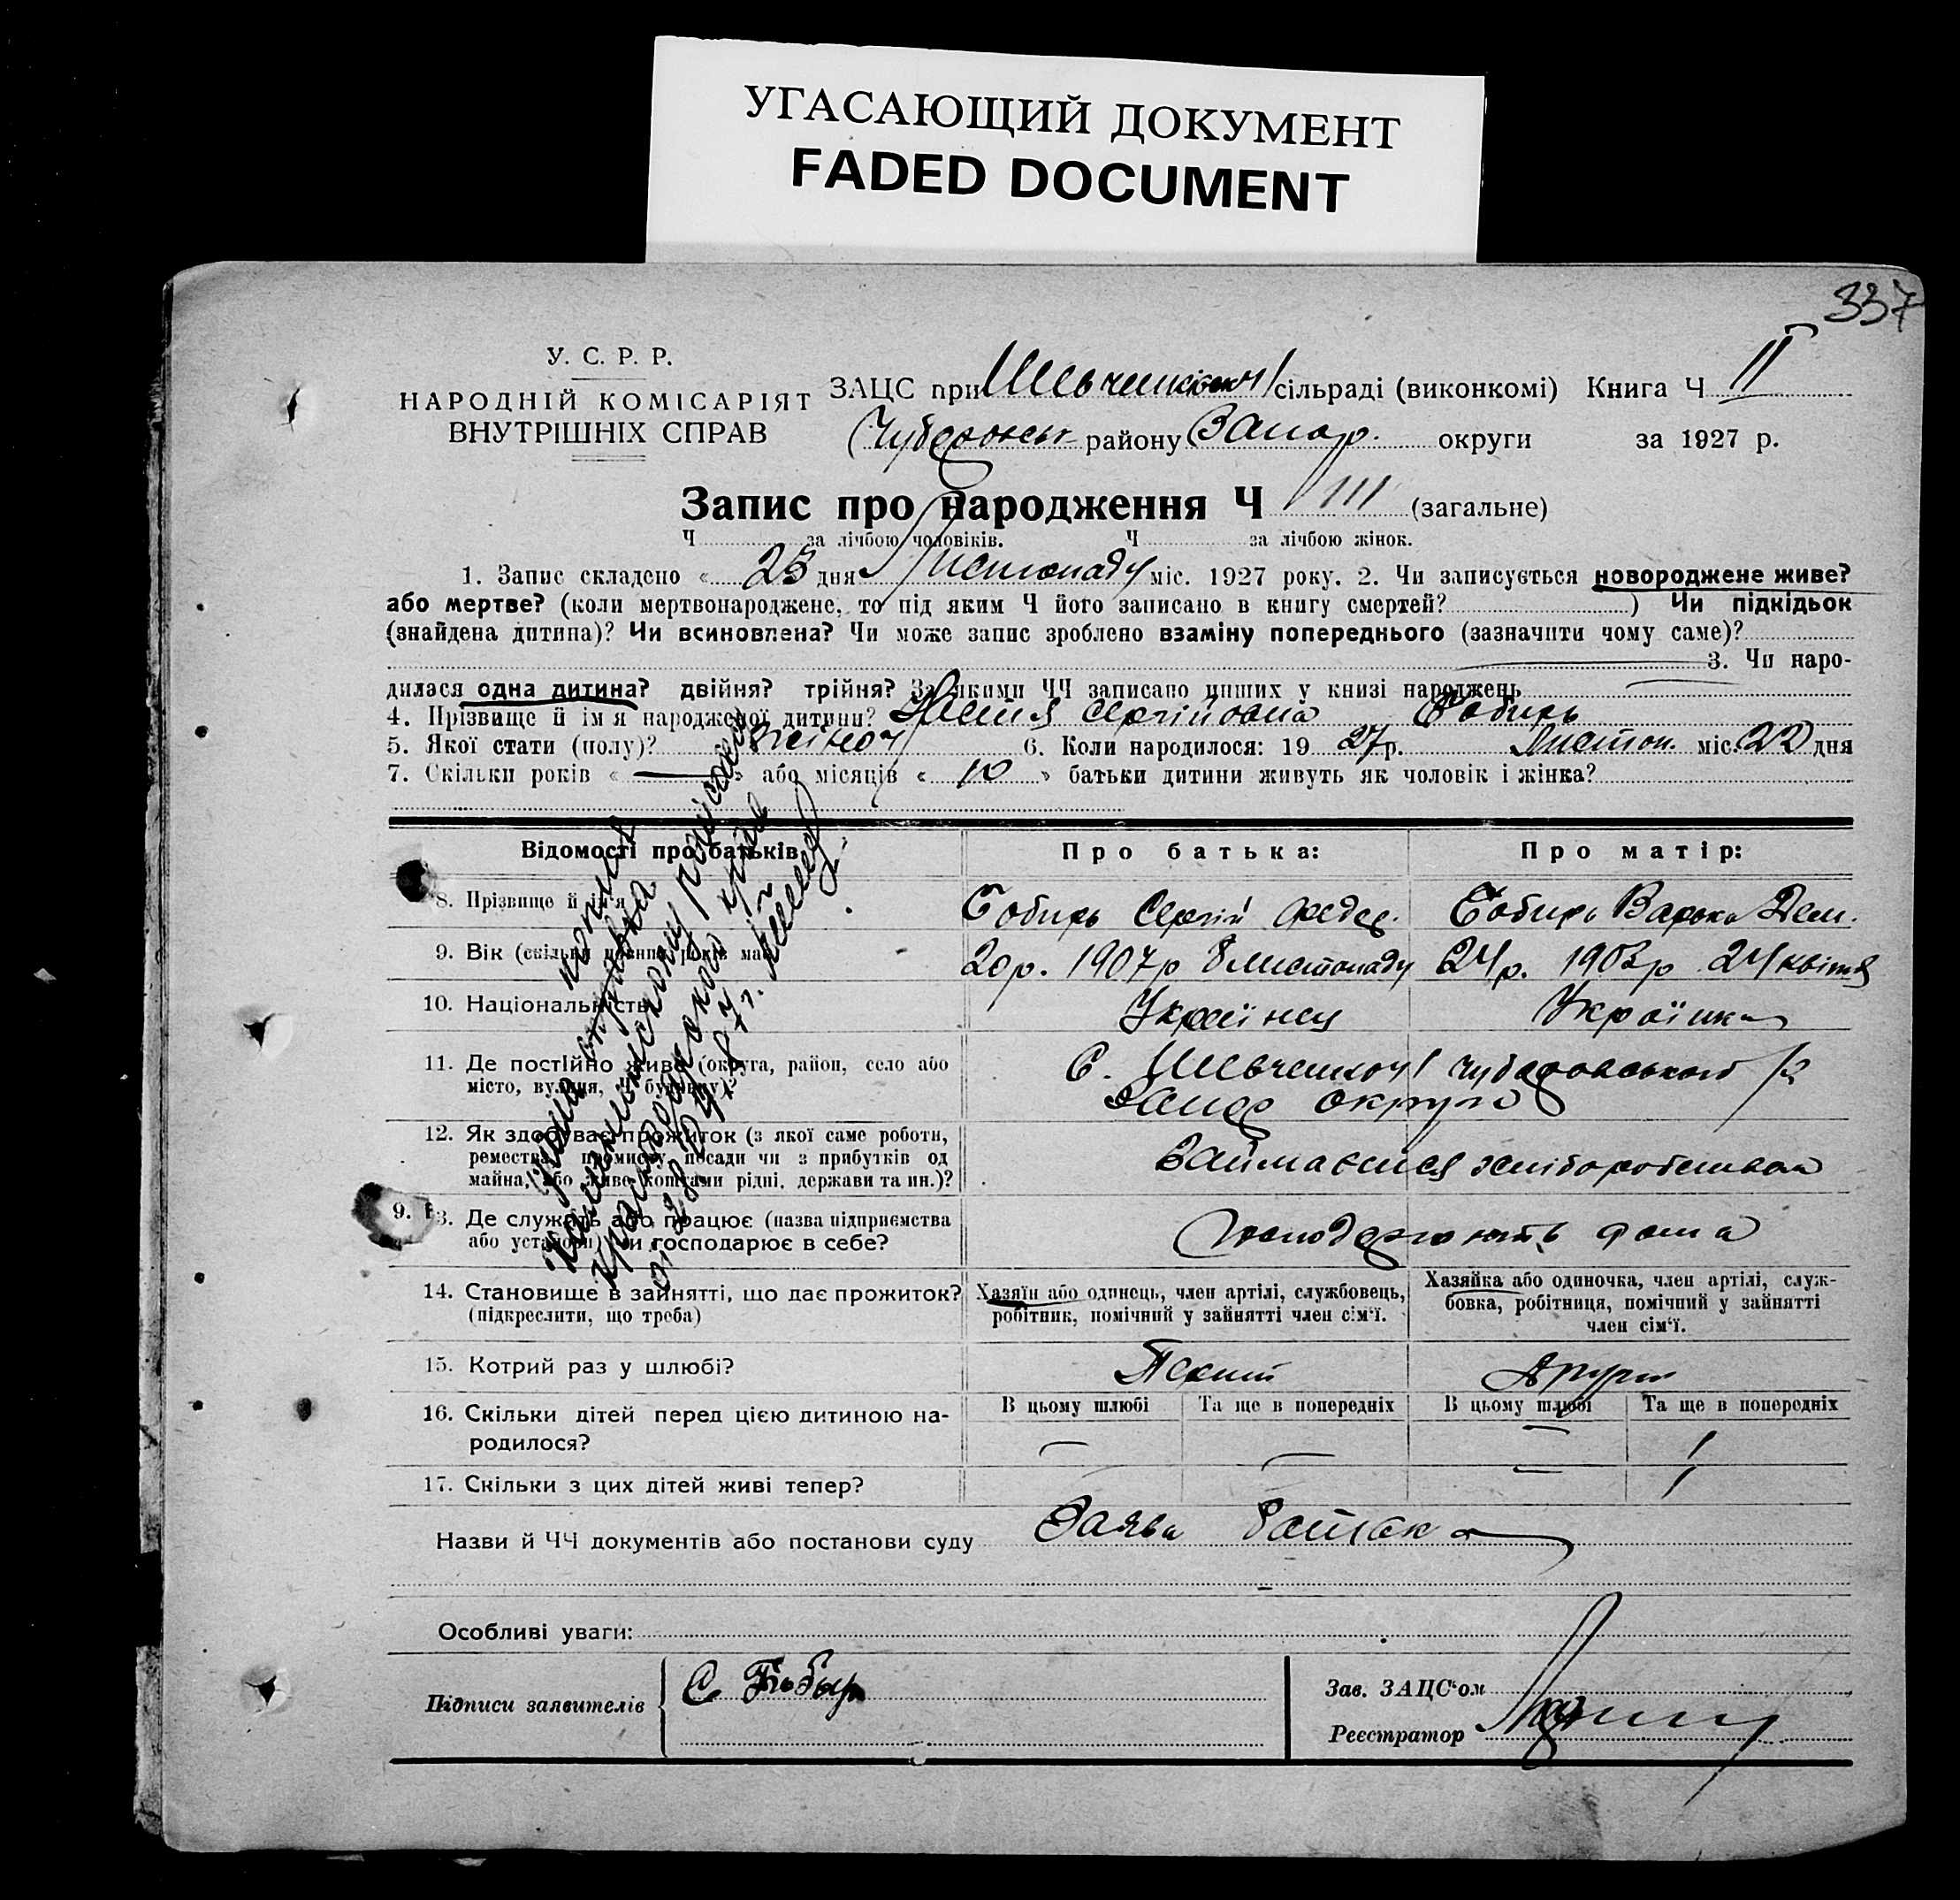 УГАСАЮЩИЙ ДОКУМЕНТ
FADED DOCUMENT
337
У. С. Р. Р.
НАРОДНІЙ КОМІСАРІЯТ
ВНУТРІШНІХ СПРАВ
ЗАЦС при сільраді (виконкомі) Книга Ч II
району Запор. округи за 1927 р.
Запис про народження Ч 111 (загальне)
Ч за лічбою чоловіків. Ч за лічбою жінок.
1. Запис складено « 23 дня Листопаду міс. 1927 року. 2. Чи записується новороджене живе?
або мертве? (коли мертвонароджене, то під яким Ч його записано в книгу смертей? ) Чи підкідьок
(знайдена дитина)? Чи всиновлена? Чи може запис зроблено взаміну попереднього (зазначити чому саме)?
3. Чи наро-
дилася одна дитина? двійня? трійня? За якими ЧЧ записано инших у книзі народжень
4. Прізвище й ім'я народженої дитини? Сергійовна Бобирь
5. Якої стати (полу)? Жіночу 6. Коли народилося: 19 27 р. Листоп. міс. 22 дня
7. Скільки років « — » або місяців « 10 » батьки дитини живуть як чоловік і жінка?
Відомості про батьків
Про батька:
Про матір:
8. Прізвище й ім'я
Бобирь Сергій Федор.
Бобирь Варька Дем.
9. Вік (скільки повних років має)
20 р. 1907 р 8 Листопаду
24 р. 1903 р 24 квітня
10. Національність
Українец
Українка
11. Де постійно живе (округа, район, село або
місто, вулиця, Ч будинку)?
С. Шевченкову Чубаровського р
Запор округи
12. Як здобуває прожиток (з якої саме роботи,
ремества, промислу, посади чи з прибутків од
майна, або живе коштами рідні, держави та ин.)?
Займаемся хліборобством
13. Де служить або працює (назва підприємства
або установи) чи господарює в себе?
Господарюють дома
14. Становище в зайнятті, що дає прожиток?
(підкреслити, що треба)
Хазяїн або одинець, член артілі, службовець,
робітник, помічний у зайнятті член сім'ї.
Хазяйка або одиночка, член артілі, служ-
бовка, робітниця, помічний у зайнятті
член сім'ї.
15. Котрий раз у шлюбі?
16. Скільки дітей перед цією дитиною на-
родилося?
В цьому шлюбі
Та ще в попередніх
В цьому шлюбі
Та ще в попередніх
— — — 1
17. Скільки з цих дітей живі тепер?
— — — 1
Назви й ЧЧ документів або постанови суду Заява батька
Особливі уваги:
Підписи заявителів
С Бобыр
Зав. ЗАЦС'ом
Реєстратор